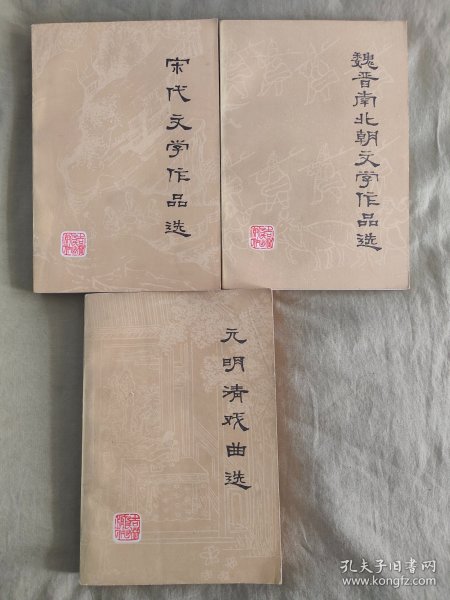 宋代文学作品选
魏晋南北朝文学作品选
元明清戏曲选
孔夫子旧书网
www.kongfz.com